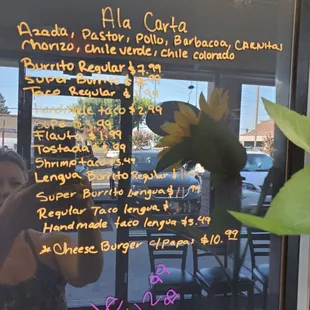 Ala Carta
Azada, Pastor, Pollo, Barbacoa, CARNITAS
Chorizo, Chile verde, Chile colorado
Burrito Regular $7.99
Super Burrito
Taco Regular $
Handmade taco $2.99
Flauta
Tostada
Shrimp taco 3.49
Lengua Burrito Regular $
Super Burrito Lengua $11.99
Regular Taco lengua $
Handmade taco lengua $3.49
*Cheese Burger c/Papas $10.99